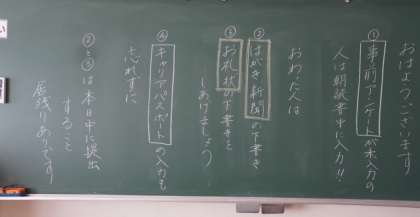 おはようございます
①事前アンケートが未入力の
人は朝読書中に入力!!
おわった人は
②はがき新聞の下書き
③お礼状の下書きを
しあげましょう
④キャリアパスポートの入力も
忘れずに
②と③は本日中に提出
すること
居残りありです